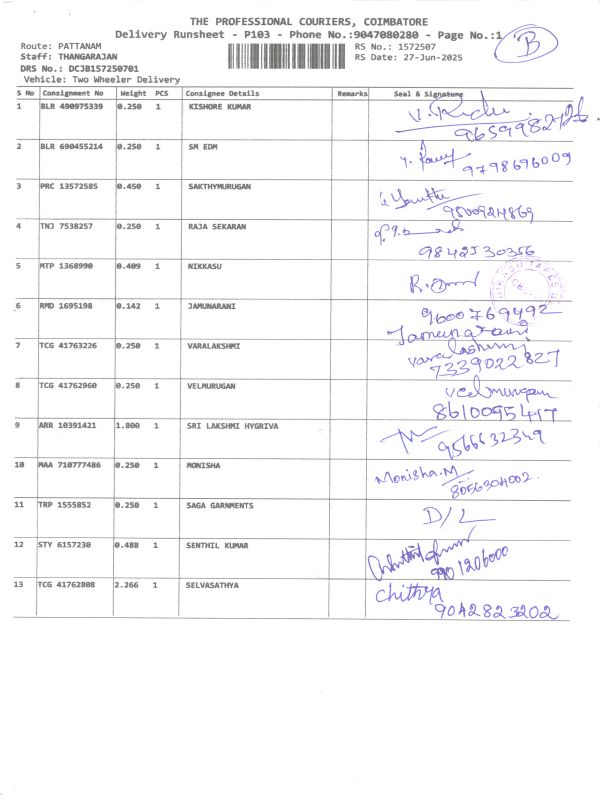 THE PROFESSIONAL COURIERS, COIMBATORE
Delivery Runsheet - P103 - Phone No.:9047080280 - Page No.:1
B
Route: PATTANAM RS No.: 1572507
Staff: THANGARAJAN RS Date: 27-Jun-2025
DRS No.: DCJB157250701
Vehicle: Two Wheeler Delivery
S No Consignment No Weight PCS Consignee Details Remarks Seal & Signature
1 BLR 490975339 0.250 1 KISHORE KUMAR
2 BLR 690455214 0.250 1 SM EDM
9798696009
3 PRC 13572585 0.450 1 SAKTHYMURUGAN
4 TNJ 7538257 0.250 1 RAJA SEKARAN
9842530356
5 MTP 1368990 0.409 1 NIKKASU
6 RMD 1695198 0.142 1 JAMUNARANI
9600769492
Jamunarani
7 TCG 41763226 0.250 1 VARALAKSHMI
varalashmi
7339022827
8 TCG 41762960 0.250 1 VELMURUGAN
velmurugan
8610095417
9 ARR 10391421 1.800 1 SRI LAKSHMI HYGRIVA
9566632349
10 MAA 710777486 0.250 1 MONISHA
Monisha.M
8056304002
11 TRP 1555852 0.250 1 SAGA GARNMENTS
D/L
12 STY 6157230 0.488 1 SENTHIL KUMAR
13 TCG 41762808 2.266 1 SELVASATHYA
Chithya
9042823202